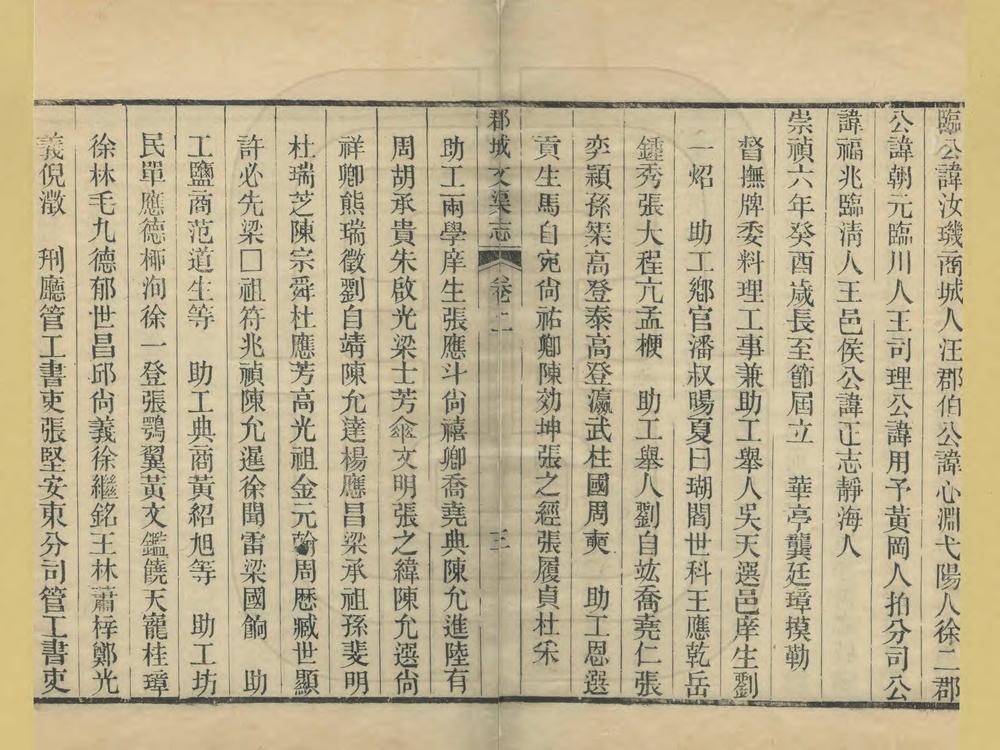 臨公諱汝璣商城人汪郡伯公諱心淵弋陽人徐二郡
公諱朝元臨川人王司理公諱用予黃岡人拍分司公
諱福兆臨淸人王邑侯公諱正志靜海人
崇禎六年癸酉歲長至節屆立　華亭龔廷璋摸勒
督撫牌委料理工事兼助工舉人吳天選邑庠生劉
一炤　助工鄉官潘叔暘夏曰瑚閻世科王應乾岳
鍾秀張大程亢孟楩　助工舉人劉自竑喬堯仁張
奕穎孫榘高登泰高登瀛武柱國周㚑　助工恩選
貢生馬自宛尙祐卿陳効坤張之經張履貞杜釆
郡城文渠志　卷二　三
助工兩學庠生張應斗尙禧卿喬堯典陳允進陸有
周胡承貴朱啟光梁士芳傘文明張之緯陳允選尙
祥卿熊瑞徵劉自靖陳允達楊應昌梁承祖孫斐明
杜瑞芝陳宗舜杜應芳高光祖金元翰周歷臧世顯
許必先梁□祖符兆禎陳允暹徐聞雷梁國餉　助
工鹽商范道生等　助工典商黃紹旭等　助工坊
民單應德栁洵徐一登張鶚翼黃文鑑饒天寵桂璋
徐林毛九德郁世昌邱尙義徐繼銘王林蕭梓鄭光
義倪澂　刑廳管工書吏張堅安東分司管工書吏